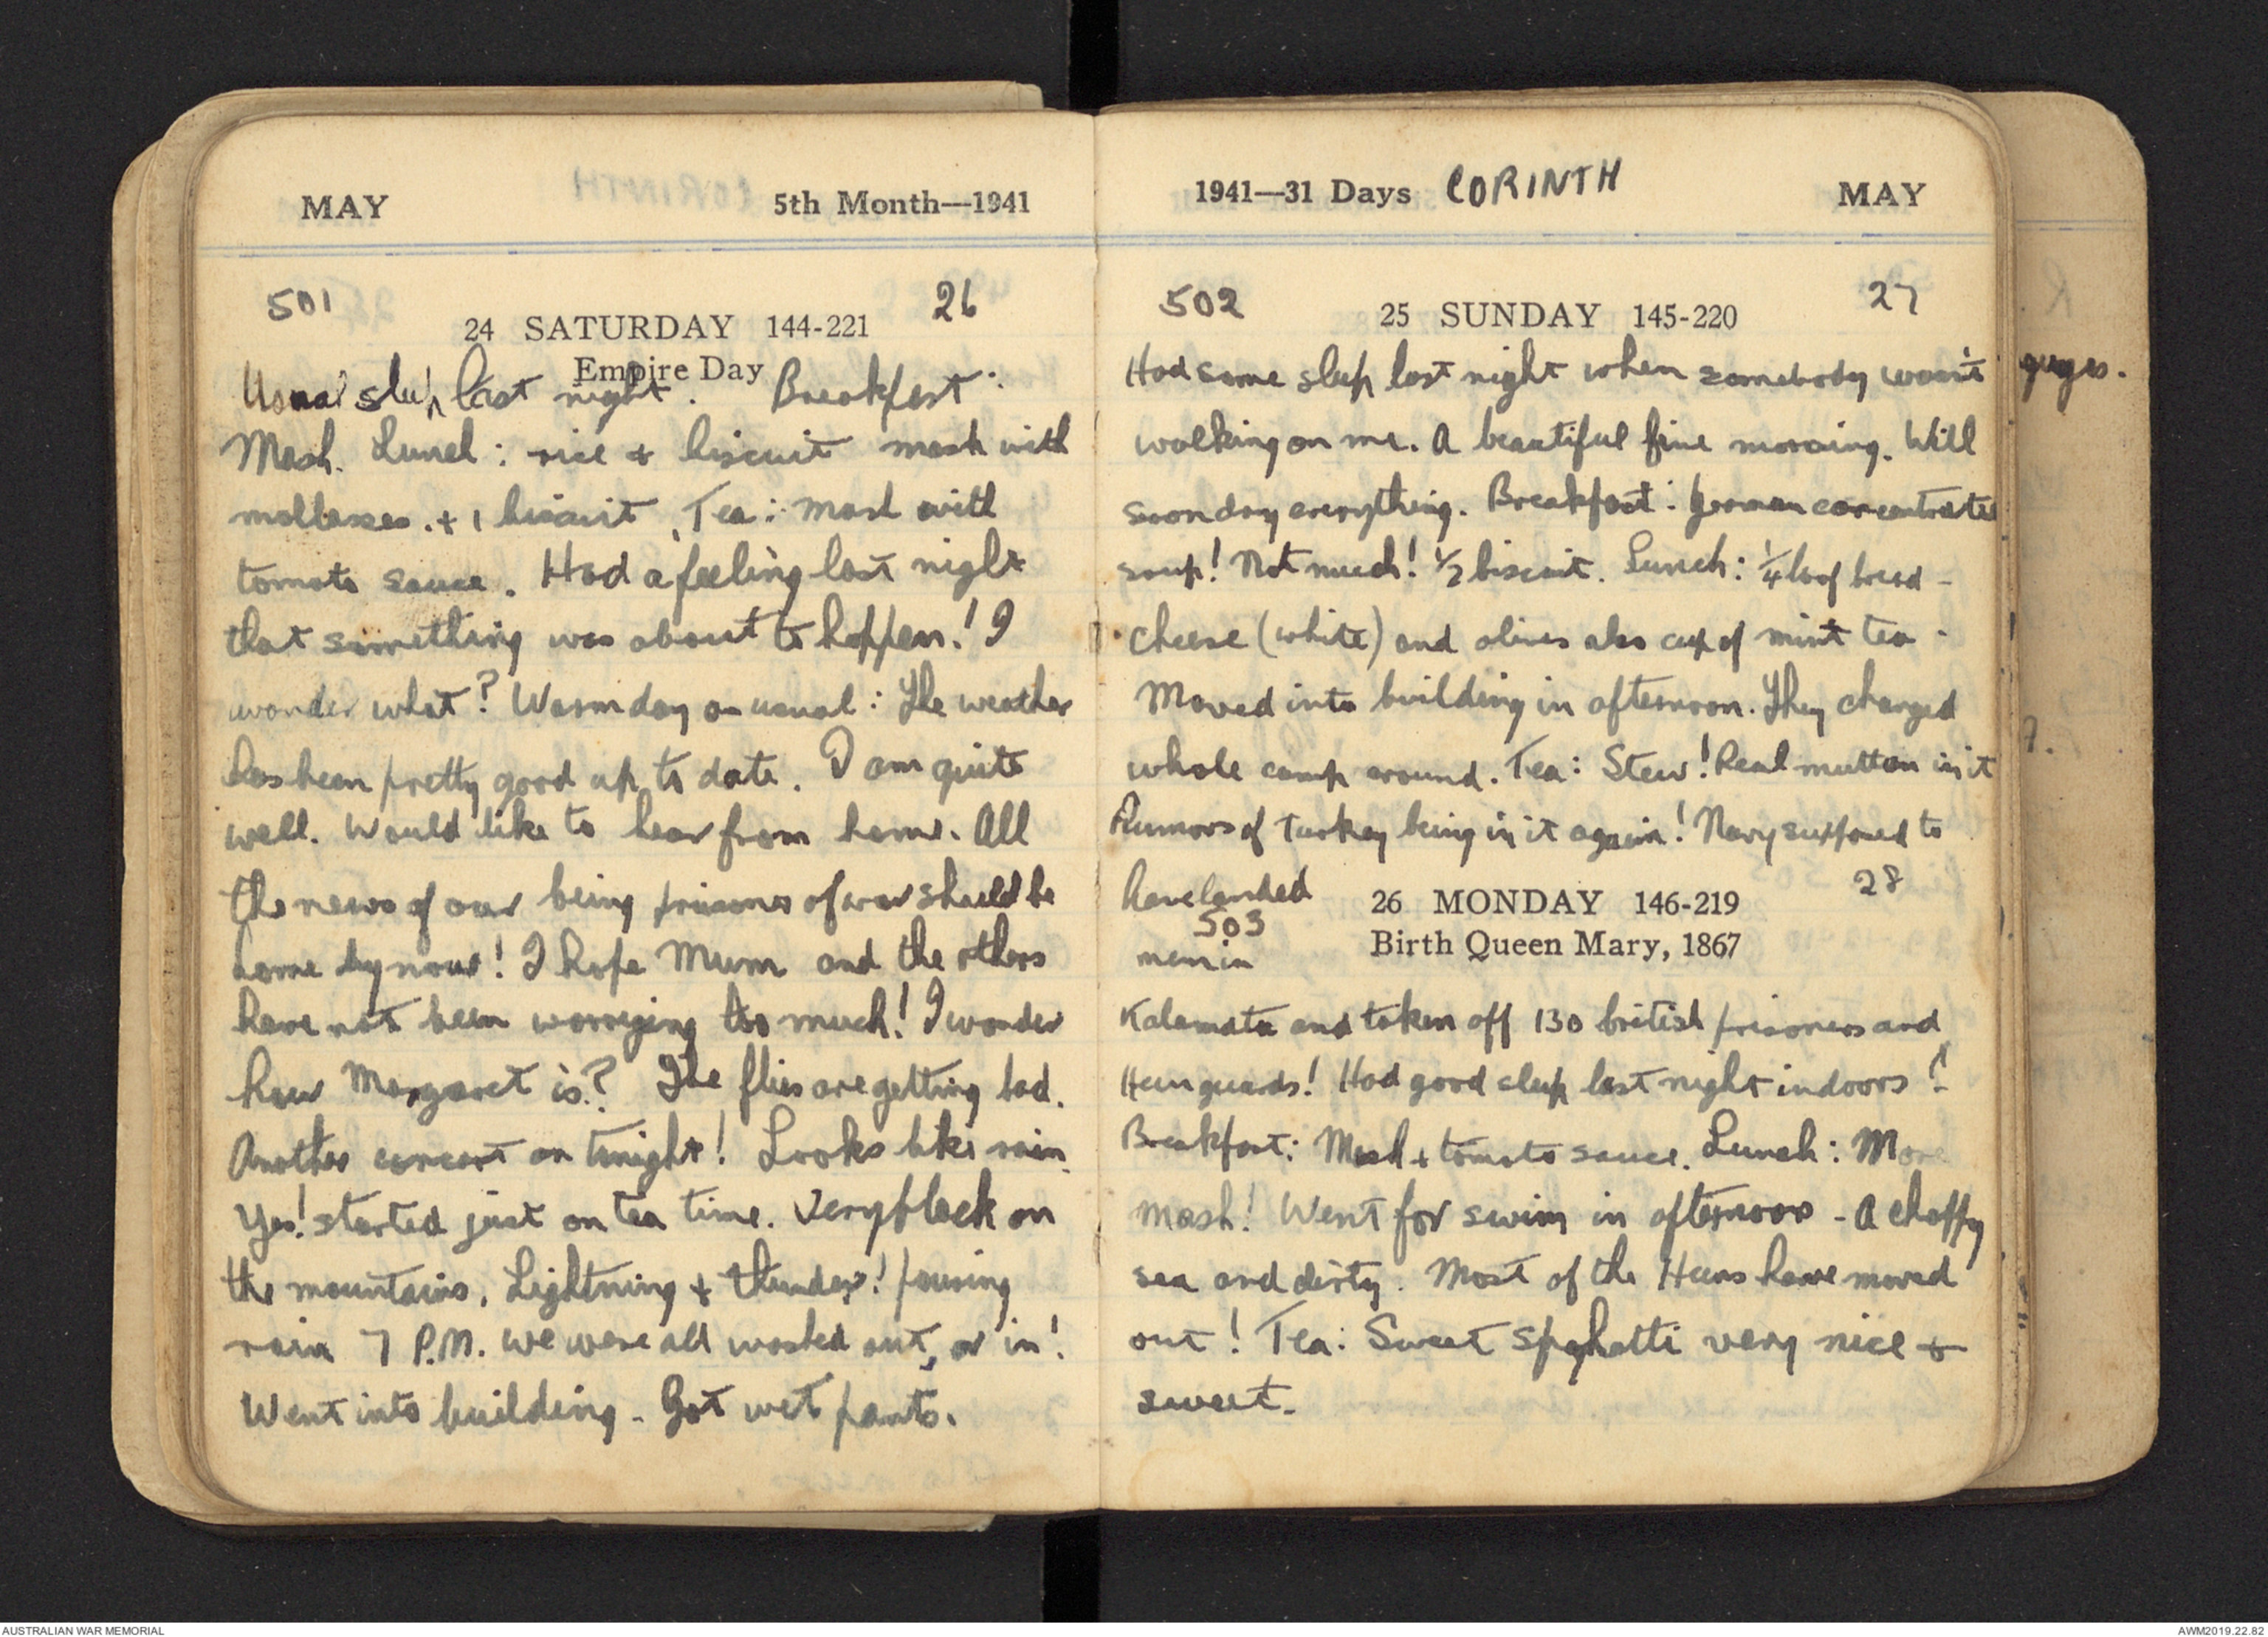 MAY 5th Month—1941
501 26
24 SATURDAY 144-221
Empire Day
Usual sleep last night. Breakfast:
Mash. Lunch: rice + biscuit mash with
mollasses. + 1 biscuit. Tea: mash with
tomato sauce. Had a feeling last night
that something was about to happen! I
wonder what? Warm day as usual: The weather
has been pretty good up to date. I am quite
well. Would like to hear from home. All
the news of our being prisoners of war should be
home by now! I hope Mum and the others
have not been worrying too much! I wonder
how Margaret is? The flies are getting bad.
Another concert on tonight! Looks like rain.
Yes! started just on tea time. Very black on
the mountains. Lightning + thunder! pouring
rain 7 P.M. We were all washed out, or in!
Went into building. Got wet pants.
1941—31 Days CORINTH MAY
502 27
25 SUNDAY 145-220
Had some sleep last night when somebody wasn't
walking on me. A beautiful fine morning. Will
soon dry everything. Breakfast: German concentrated
soup! Not much! 1/2 biscuit. Lunch: 1/4 loaf bread -
cheese (white) and olives also cup of mint tea.
Moved into building in afternoon. They changed
whole camp around. Tea: Stew! Real mutton in it
Rumors of Turkey being in it again! Navy supposed to
have landed
28
26 MONDAY 146-219
503
Birth Queen Mary, 1867
men in
Kalamata and taken off 130 british prisoners and
Hun guards! Had good sleep last night indoors!
Breakfast: Mash + tomato sauce. Lunch: More
mash! Went for swim in afternoon - A choppy
sea and dirty. Most of the Huns have moved
out! Tea: Sweet spghatti very nice +
sweet.
AUSTRALIAN WAR MEMORIAL
AWM2019.22.82